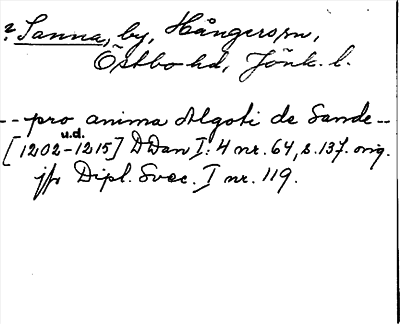 ? Sanna, by, Hångers sn,
Östbo hd, Jönk. l.
-- pro anima Algoti de Sande --
u.d.
[1202-1215] DDan I: 4 nr. 64, s. 137. orig.
jfr Dipl. Svec. I nr. 119.